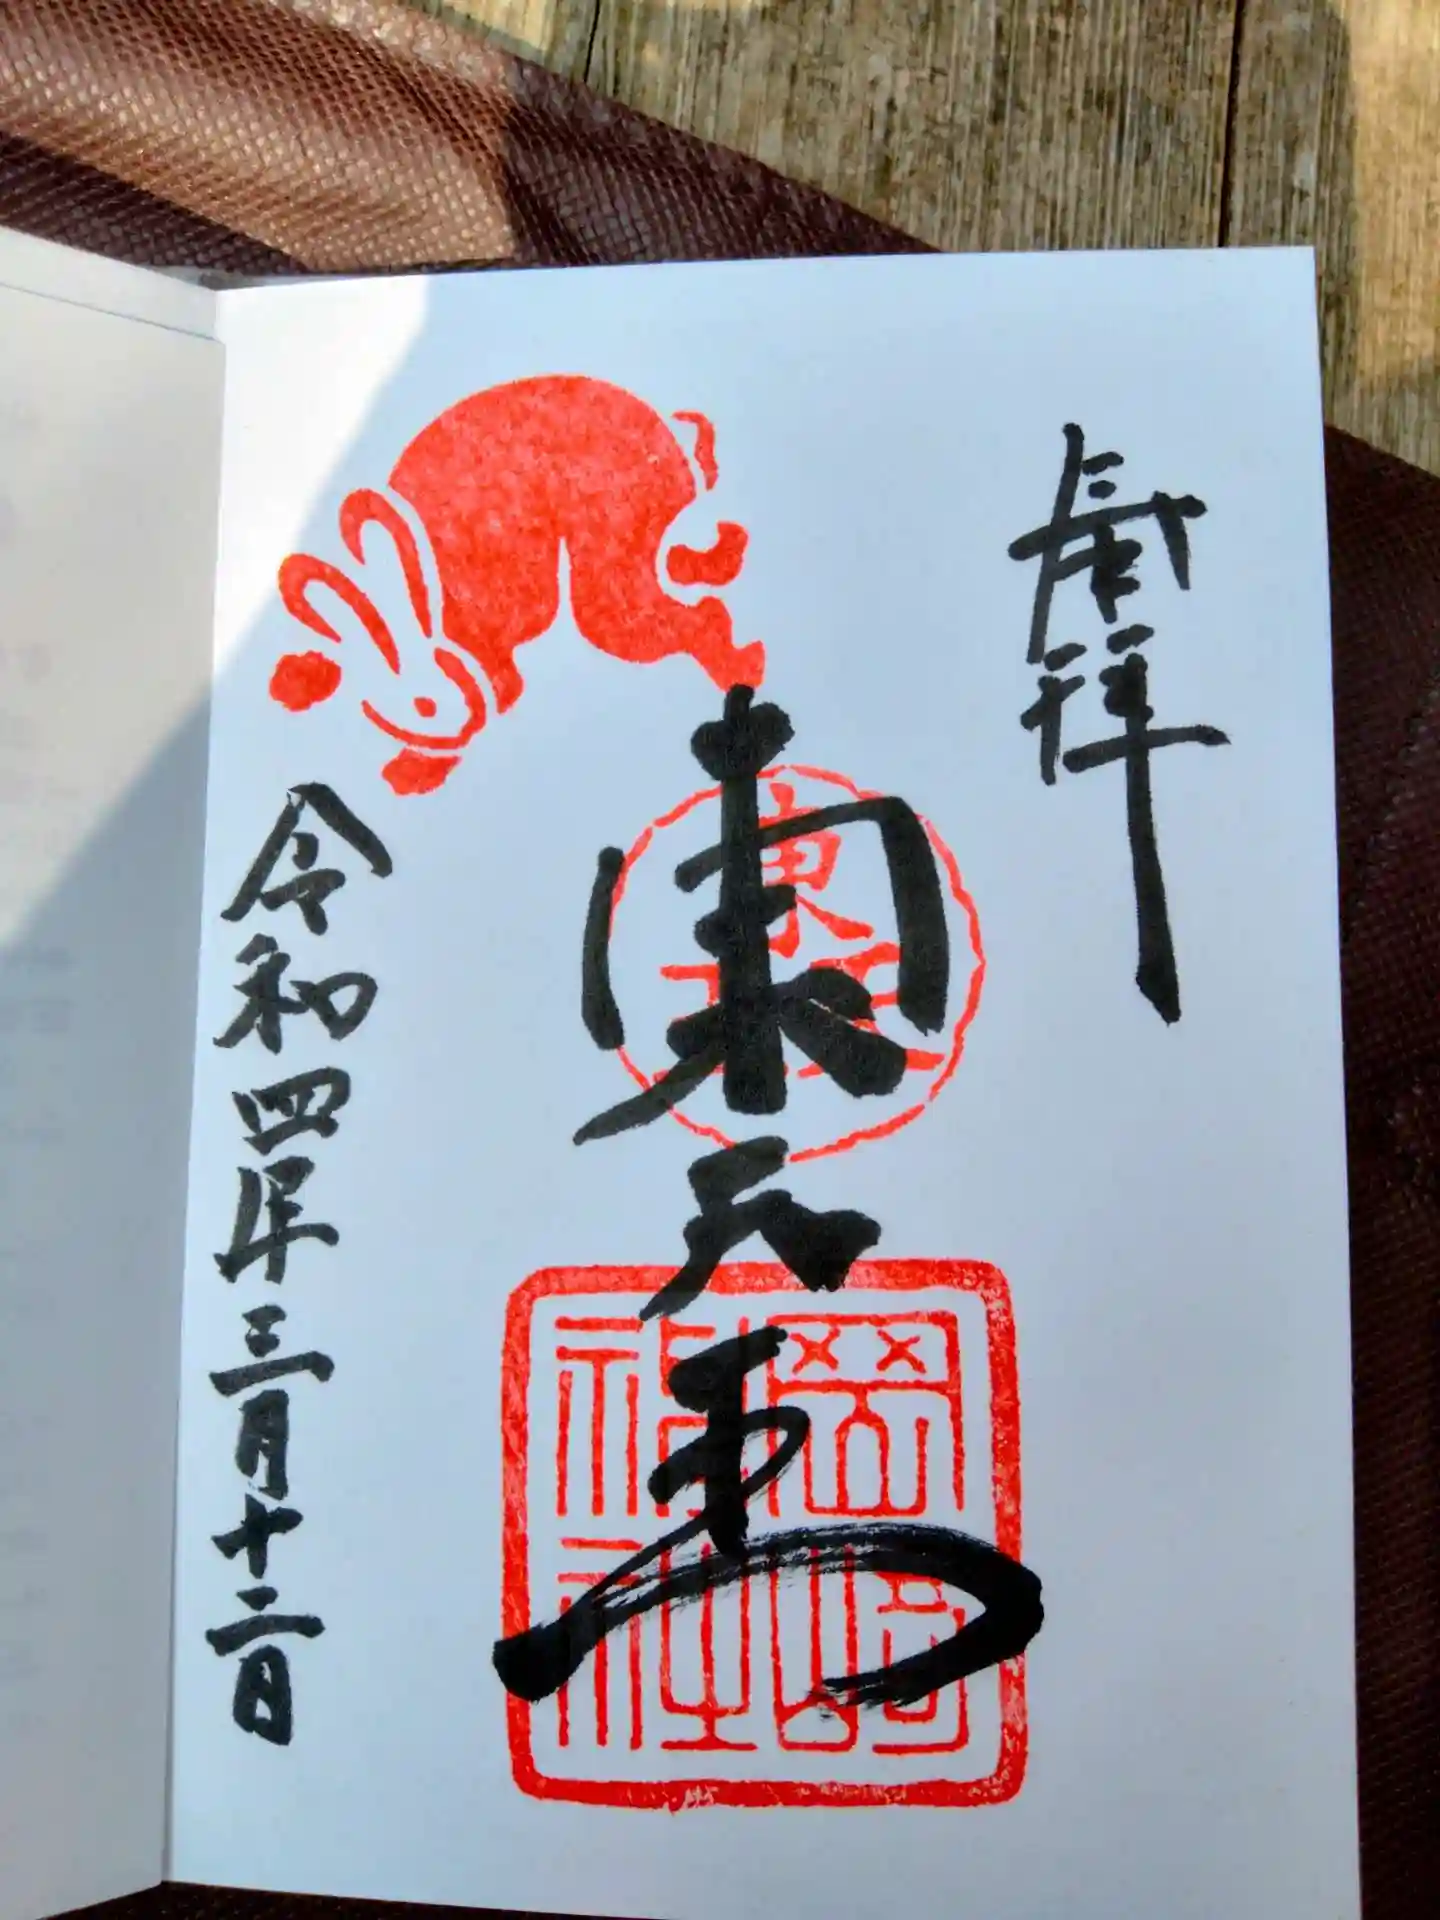 拝
東天王
東天王
岡崎
神社
令和四年三月十二日